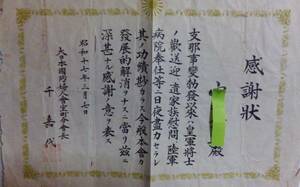 感謝狀
殿
支那事變勃發以来皇軍將士
ノ歡送迎遺家族慰問陸軍
病院奉仕等日夜盡力セラレ
其ノ功績尠カラス今般本會カ
發展的解消ヲナスニ當リ茲ニ
深甚ナル感謝ノ意ヲ表ス
昭和十七年三月七日
大日本國防婦人會室町分會長
千嘉代